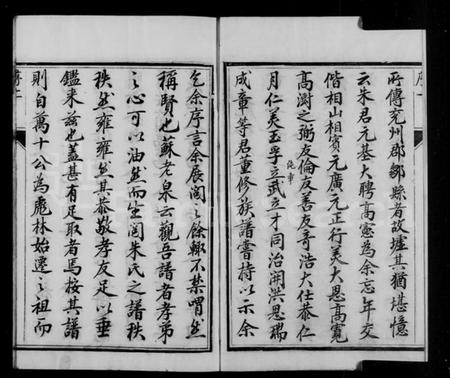 序一
所傳兗州郡鄒縣者故墟其猶堪憶
云朱君元基大聘高憲為余忘年交
偕相山相賓元廣元正行美大恩高寬
高澍之弼友倫友善友奇浩大任恭仁
月仁美玉孚立武立才同治開洪恩瑞
成章等君董修族譜嘗持以示余
乞余序言余展閱之餘輒不禁喟然
稱賢也蘇老泉云觀吾譜者孝弟
之心可以油然而生閱朱氏之譜秩
秩然雍雍然其恭敬孝友足以垂
鑑来茲也蓋甚有足取者焉按其譜
則自萬十公為麂林始遷之祖而
序二